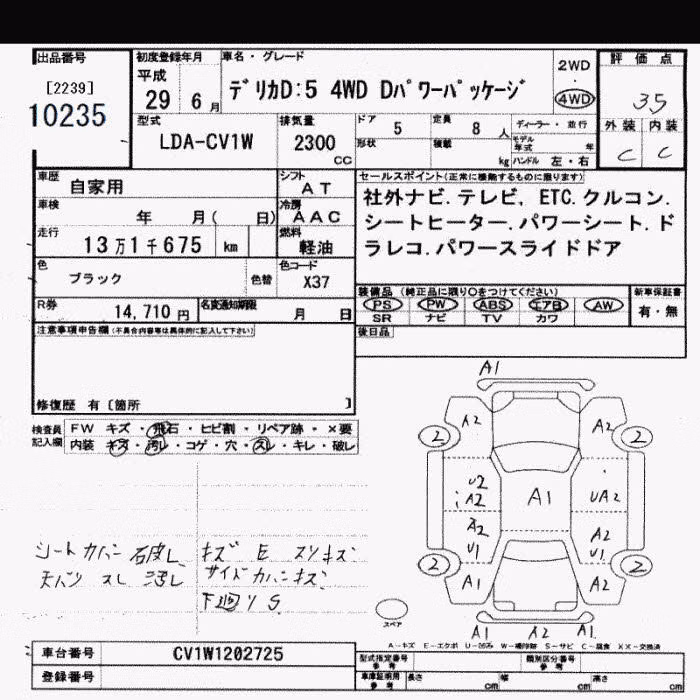 出品番号
[2239]
10235
初度登録年月
平成
29 年 6 月
車名・グレード
デリカD:5 4WD Dパワーパッケージ
2WD
4WD
評価点
3.5
外装 内装
C C
型式
LDA-CV1W
排気量
2300
CC
ドア
5
定員
8 人
形状
積載
kg
ディーラー・並行
モデル年式 年
ハンドル 左・右
車歴
自家用
シフト
AT
車検
年 月( 日)
冷房
AAC
走行
13万1千675 km
燃料
軽油
色
ブラック
色替
色コード
X37
R券
14,710 円
名変通知期限
月 日
セールスポイント(正常に機能するものに限ります)
社外ナビ.テレビ, ETC.クルコン.
シートヒーター.パワーシート.ド
ラレコ.パワースライドドア
装備品(純正品に限り○をつけてください)
PS PW ABS エアB AW
SR ナビ TV カワ
新車保証書
有・無
後日品
注意事項申告欄(不具合内容等は具体的に記入して下さい)
修復歴 有 [箇所 ]
検査員記入欄
FW キズ・飛石・ヒビ割・リペア跡・×要
内装 キズ・汚れ・コゲ・穴・スレ・キレ・破レ
シートカバー 破レ
天バリ スレ 汚レ
キズ E スリキズ
サイドカバーキズ
下廻り S
A1
A2 A2
2 2
U2
A2
A1
UA2
A2
U1
A2
U1
2 2
A1 A2
A1 A2 A1
スペア
A-キズ E-エクボ U-凹み W-補修跡 S-サビ C-腐食 XX-交換済
車台番号
CV1W1202725
登録番号
型式指定番号
参考
類別区分番号
参考
車庫証明用
参考
長さ cm 幅 cm 高さ cm